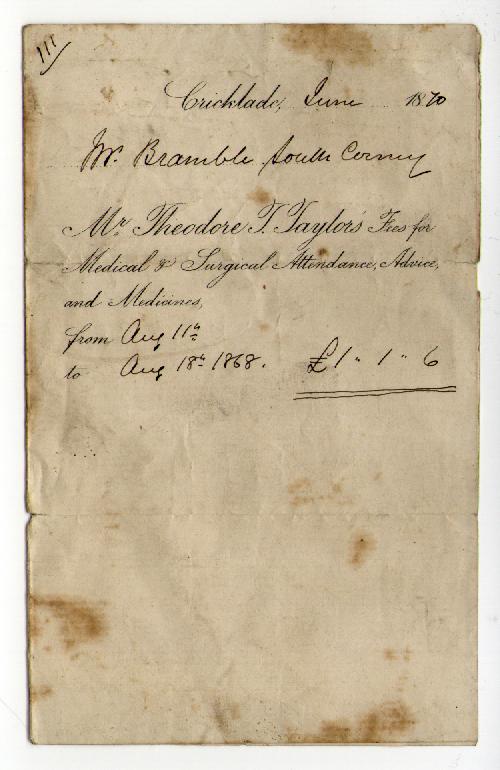 111
Cricklade, June 1870
Mr. Bramble South Cerney
Mr. Theodore T. Taylor's Fees for
Medical & Surgical Attendance, Advice,
and Medicines,
from Aug 11th
to Aug 18th 1868. £1 " 1 " 6